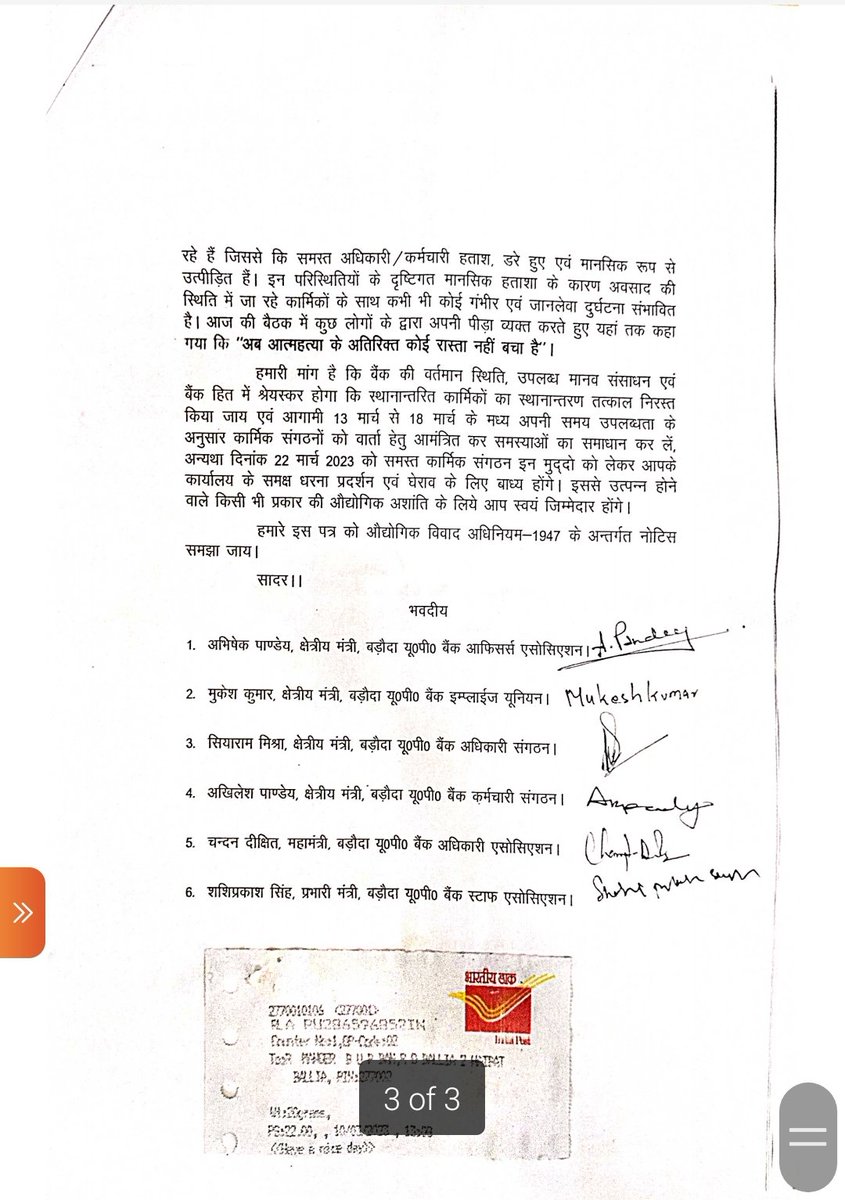 रहे हैं जिससे कि समस्त अधिकारी/कर्मचारी हताश, डरे हुए एवं मानसिक रूप से
उत्पीड़ित हैं। इन परिस्थितियों के दृष्टिगत मानसिक हताशा के कारण अवसाद की
स्थिति में जा रहे कार्मिकों के साथ कभी भी कोई गंभीर एवं जानलेवा दुर्घटना संभावित
है। आज की बैठक में कुछ लोगों के द्वारा अपनी पीड़ा व्यक्त करते हुए यहां तक कहा
गया कि "अब आत्महत्या के अतिरिक्त कोई रास्ता नहीं बचा है"।
हमारी मांग है कि बैंक की वर्तमान स्थिति, उपलब्ध मानव संसाधन एवं
बैंक हित में श्रेयस्कर होगा कि स्थानान्तरित कार्मिकों का स्थानान्तरण तत्काल निरस्त
किया जाय एवं आगामी 13 मार्च से 18 मार्च के मध्य अपनी समय उपलब्धता के
अनुसार कार्मिक संगठनों को वार्ता हेतु आमंत्रित कर समस्याओं का समाधान कर लें,
अन्यथा दिनांक 22 मार्च 2023 को समस्त कार्मिक संगठन इन मुद्दो को लेकर आपके
कार्यालय के समक्ष धरना प्रदर्शन एवं घेराव के लिए बाध्य होंगे। इससे उत्पन्न होने
वाले किसी भी प्रकार की औद्योगिक अशांति के लिये आप स्वयं जिम्मेदार होंगे।
हमारे इस पत्र को औद्योगिक विवाद अधिनियम–1947 के अन्तर्गत नोटिस
समझा जाय।
सादर।।
भवदीय
1. अभिषेक पाण्डेय, क्षेत्रीय मंत्री, बड़ौदा यू0पी0 बैंक आफिसर्स एसोसिएशन। A. Pandey
2. मुकेश कुमार, क्षेत्रीय मंत्री, बड़ौदा यू0पी0 बैंक इम्प्लाईज यूनियन। Mukesh kumar
3. सियाराम मिश्रा, क्षेत्रीय मंत्री, बड़ौदा यू0पी0 बैंक अधिकारी संगठन।
4. अखिलेश पाण्डेय, क्षेत्रीय मंत्री, बड़ौदा यू0पी0 बैंक कर्मचारी संगठन।
5. चन्दन दीक्षित, महामंत्री, बड़ौदा यू0पी0 बैंक अधिकारी एसोसिएशन।
6. शशिप्रकाश सिंह, प्रभारी मंत्री, बड़ौदा यू0पी0 बैंक स्टाफ एसोसिएशन।
भारतीय डाक
India Post
2770010106 <277001>
Counter No:1,OP-Code:02
BALLIA, PIN:277002
Wt:20grams,
PS:22.00, , 10/03/2023 ,
<<Have a nice day>>
3 of 3